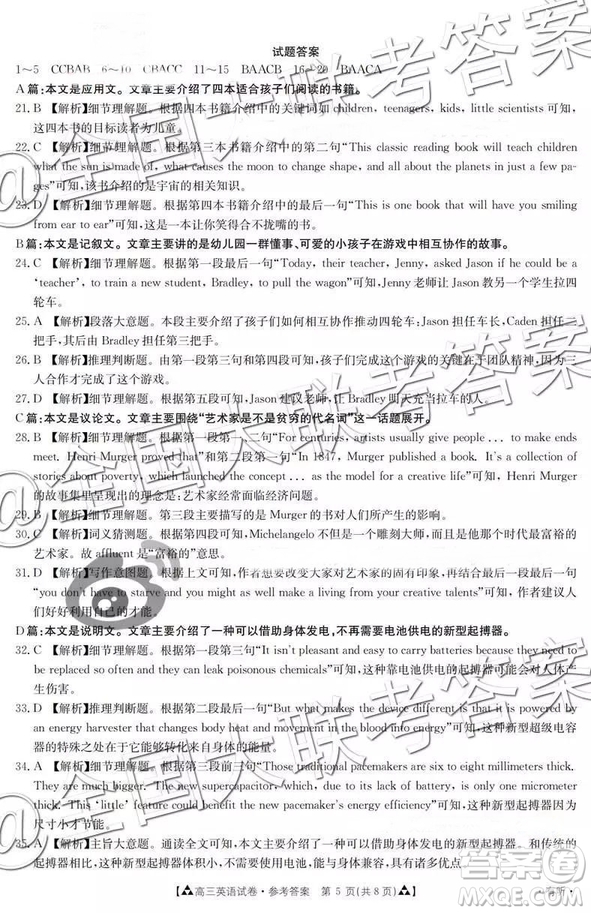 试题答案
1～5 CCBAB 6～10 CBACC 11～15 BAACB 16～20 BAACA
A篇:本文是应用文。文章主要介绍了四本适合孩子们阅读的书籍。
21. B 【解析】细节理解题。根据四本书籍介绍中的关键词如 children, teenagers, kids, little scientists 可知,
这四本书的目标读者为儿童。
22. C 【解析】细节理解题。根据第三本书籍介绍中的第二句“This classic reading book will teach children
what the sun is made of, what causes the moon to change shape, and all about the planets in just a few pa-
ges”可知,该书介绍的是宇宙的相关知识。
23. D 【解析】细节理解题。根据第四本书籍介绍中的最后一句“This is one book that will have you smiling
from ear to ear”可知,这是一本让你笑得合不拢嘴的书。
B篇:本文是记叙文。文章主要讲的是幼儿园一群懂事、可爱的小孩子在游戏中相互协作的故事。
24. C 【解析】细节理解题。根据第一段最后一句“Today, their teacher, Jenny, asked Jason if he could be a
‘teacher’, to train a new student, Bradley, to pull the wagon”可知,Jenny 老师让 Jason 教一个新学生拉四
轮车。
25. A 【解析】段落大意题。本段主要介绍了孩子们如何相互协作推动四轮车:Jason 担任车长,Caden 担任第二
把手,其后由 Bradley 担任第三把手。
26. B 【解析】推理判断题。由第一段第三句和第四段的内容可知,做这个游戏的关键在于团队精神,因为三个
人合作才完成了这个游戏。
27. D 【解析】细节理解题。根据第五段可知,Jason 建议老师,让 Bradley 明天充当拉车的人。
C篇:本文是议论文。文章主要围绕“艺术家是不是贫穷的代名词”这一话题展开。
28. B 【解析】细节理解题。根据第一段第一、二句“For centuries, artists usually give people ... to make ends
meet. Henri Murger proved that”和第二段“In 1847, Murger published a book. It's a collection of
stories about poverty, which launched the concept ... as the model for a creative life”可知,Henri Murger
的故事集里呈现出的理念是:艺术家经常面临经济问题。
29. B 【解析】细节理解题。第三段主要描写的是 Murger 的书对人们所产生的影响。
30. C 【解析】词义猜测题。根据第四段可知,Michelangelo 不但是一个雕刻大师,而且在他的那个时代最富裕的
艺术家。故 affluent 是“富裕的”意思。
31. D 【解析】写作意图题。根据上文可知,作者想要改变大家对艺术家的固有印象,再结合最后一段最后一句
“you don't have to starve and you might as well share your creative gifts with the world”可知,作者建议人
们好好利用自己的才能。
D篇:本文是说明文。文章主要介绍了一种可以借助身体发电,不再需要电池供电的新型起搏器。
32. C 【解析】细节理解题。根据第一段第三句“It isn't pleasant and easy to carry batteries because they need to
be replaced so often and they can leak poisonous chemicals”可知,这种靠电池供电的起搏器可能会对人体产
生伤害。
33. D 【解析】推理判断题。根据第二段最后一句“But what makes the device different is that it is powered by
an energy harvester that changes body heat and movement into energy”可知,这种新型超级电容
器的特殊之处在于它能够转化来自人体内部的能量。
34. A 【解析】推理判断题。根据第三段前三句“Those traditional pacemakers are six to eight millimeters thick.
They are much bigger. The new supercapacitor, which, due to its lack of battery, is only one micrometer
thick. This ‘little’ feature could benefit the new pacemaker's energy efficiency”可知,这种新型起搏器因为
尺寸小才节能。
35. A 【解析】主旨大意题。通读全文可知,本文主要介绍了一种借助身体发电的新型起搏器。与传统的起搏器
相比,这种新型起搏器有许多优点。
高三英语试卷·参考答案 第 5 页(共 8 页)
@全国大联考答案